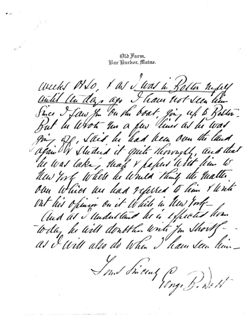 Old Farm,
Bar Harbor, Maine.
weeks or so, & as I was in Boston myself
until ten days ago I have not seen him
since I saw him on the boat, going up to Boston.
But he wrote me a few lines as he was
going off, said he had been over the land
again & studied it quite thoroughly, and that
he was taking maps & papers with him to
New York where he would study the matter
over which we had referred to him & write
out his opinion on it while in New York.
And as I understand he is expected home
today he will doubtless write you shortly
as I will also do when I have seen him —
Yours Sincerely
George B. Dorr